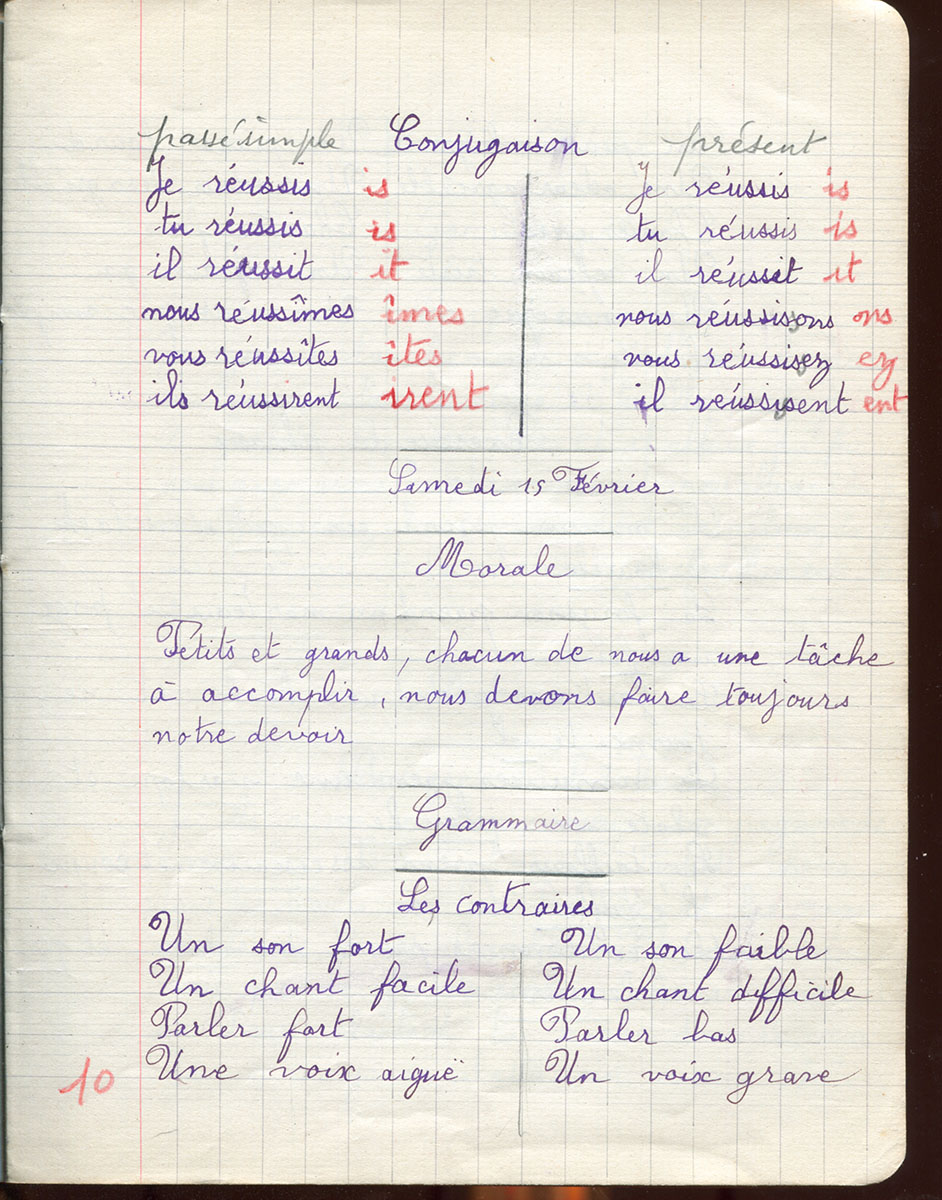 passé simple Conjugaison présent
Je réussis is Je réussis is
tu réussis is tu réussis is
il réussit it il réussit it
nous réussîmes îmes nous réussisons ons
vous réussîtes îtes vous réussisez ez
ils réussirent irent il reússisent ent
Samedi 15 Février
Morale
Petits et grands, chacun de nous a une tâche
à accomplir, nous devons faire toujours
notre devoir
Grammaire
Les contraires
Un son fort Un son faible
Un chant facile Un chant difficile
Parler fort Parler bas
10 Une voix aiguë Un voix grave